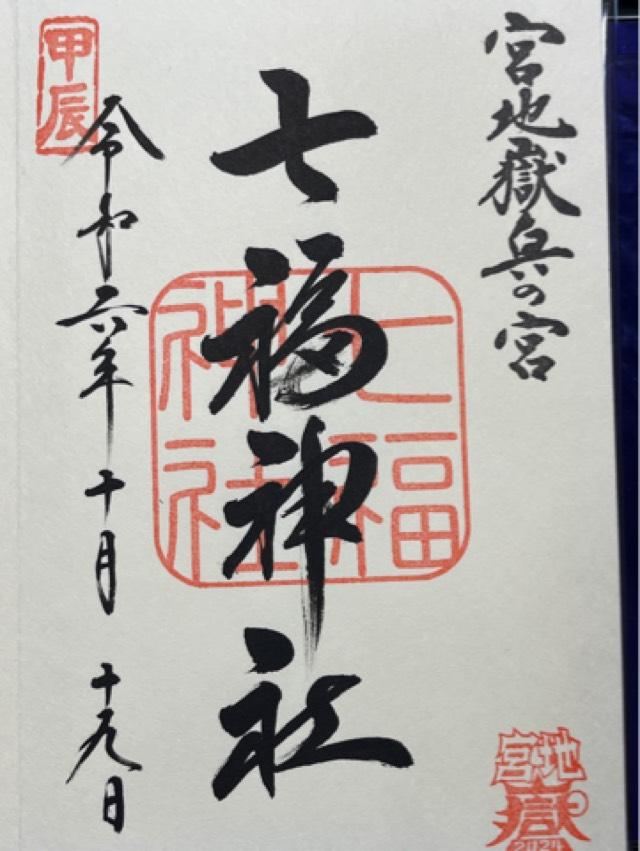 宮地嶽奥の宮
七福神社
七福
神社
令和六年 十月 十九日
甲辰
宮地
嶽
2024